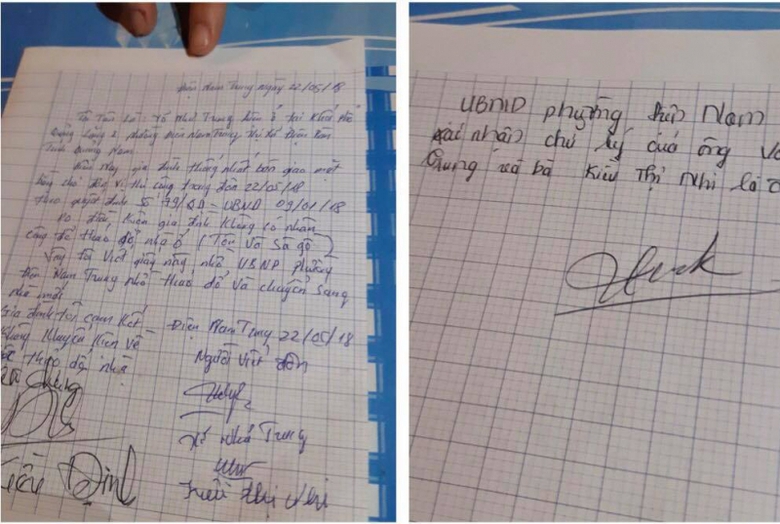 Điện Nam Trung ngày 22/05/18
Tôi Tên Là: Võ Như Trung hiện ở tại Khối Phố
Quảng Lăng 2 phường Điện Nam Trung Thị Xã Điện Bàn
Tỉnh Quảng Nam
nay gia đình thống nhất bàn giao mặt
bằng cho
theo quyết định Số 79/QĐ-UBND 09/01/18
Do điều Kiện gia đình không có nhân
công để tháo dỡ nhà ở (Tôn Và Sà gồ)
Vậy tôi Viết giấy này nhờ UBND phường
Điện Nam Trung nhờ tháo dỡ Và chuyển Sang
nhà mới
Gia đình tôi cam Kết
Không Khuyến Kiện Về
tháo dỡ nhà
Điện Nam Trung 22/05/18
Người Viết đơn
Võ Như Trung
Kiều Thị Nhi
UBND phường Điện Nam
xác nhận chữ ký của ông Võ
Trung và bà Kiều Thị Nhi là